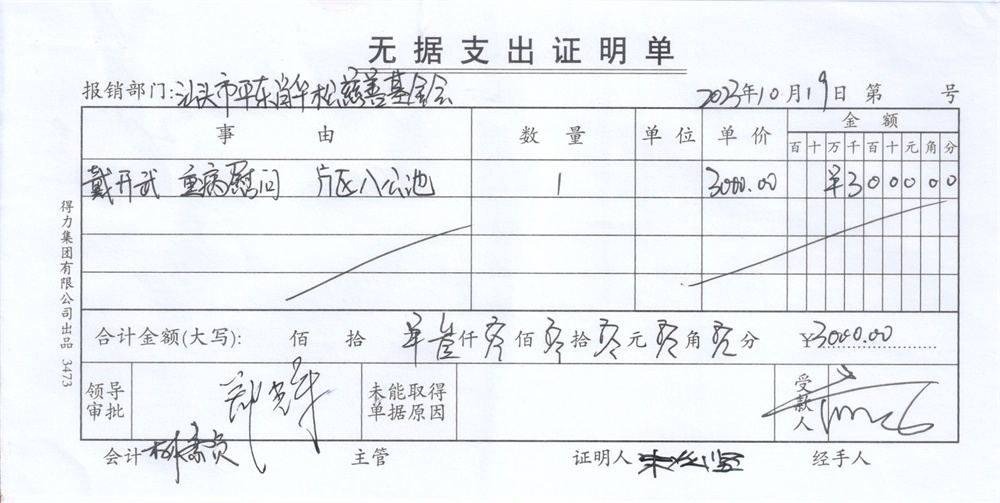 无据支出证明单
报销部门:汕头市平东肖华松慈善基金会 2023年10月19日 第 号
事 由 数量 单位 单价 金额
百 十 万 千 百 十 元 角 分
戴开武 重病慰问 片区八公池 1 3000.00 ¥300000
合计金额(大写): 佰 拾 ¥叁仟零佰零拾零元零角零分 ¥3000.00
领导审批 未能取得单据原因 受款人
会计 主管 证明人 经手人
得力集团有限公司出品 3473